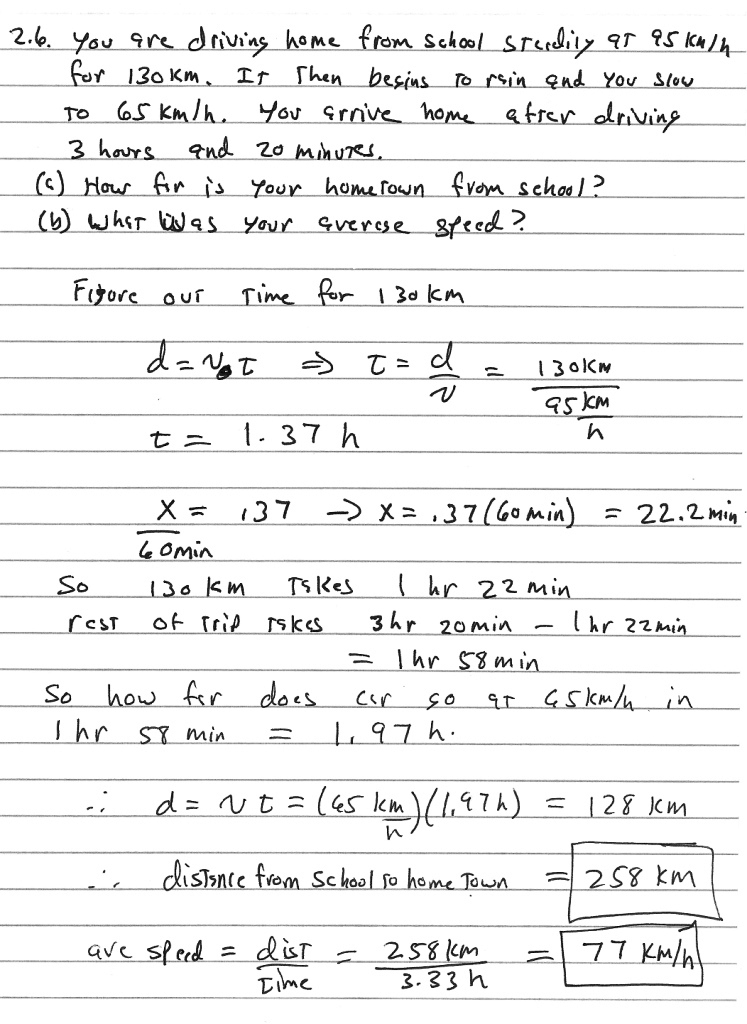 2.6. You are driving home from school steadily at 95 km/h
for 130 km. It then begins to rain and you slow
to 65 km/h. You arrive home after driving
3 hours and 20 minutes.
(a) How far is your hometown from school?
(b) What was your average speed?
Figure out time for 130 km
d = v t ⇒ t = d/v = 130 km / 95 km/h
t = 1.37 h
x/60 min = .37 → x = .37 (60 min) = 22.2 min
So 130 km takes 1 hr 22 min
rest of trip takes 3 hr 20 min – 1 hr 22 min
= 1 hr 58 min
So how far does car go at 65 km/h in
1 hr 58 min = 1.97 h.
∴ d = v t = (65 km/h)(1.97 h) = 128 km
∴ distance from school to home town = 258 km
ave speed = dist/time = 258 km / 3.33 h = 77 km/h